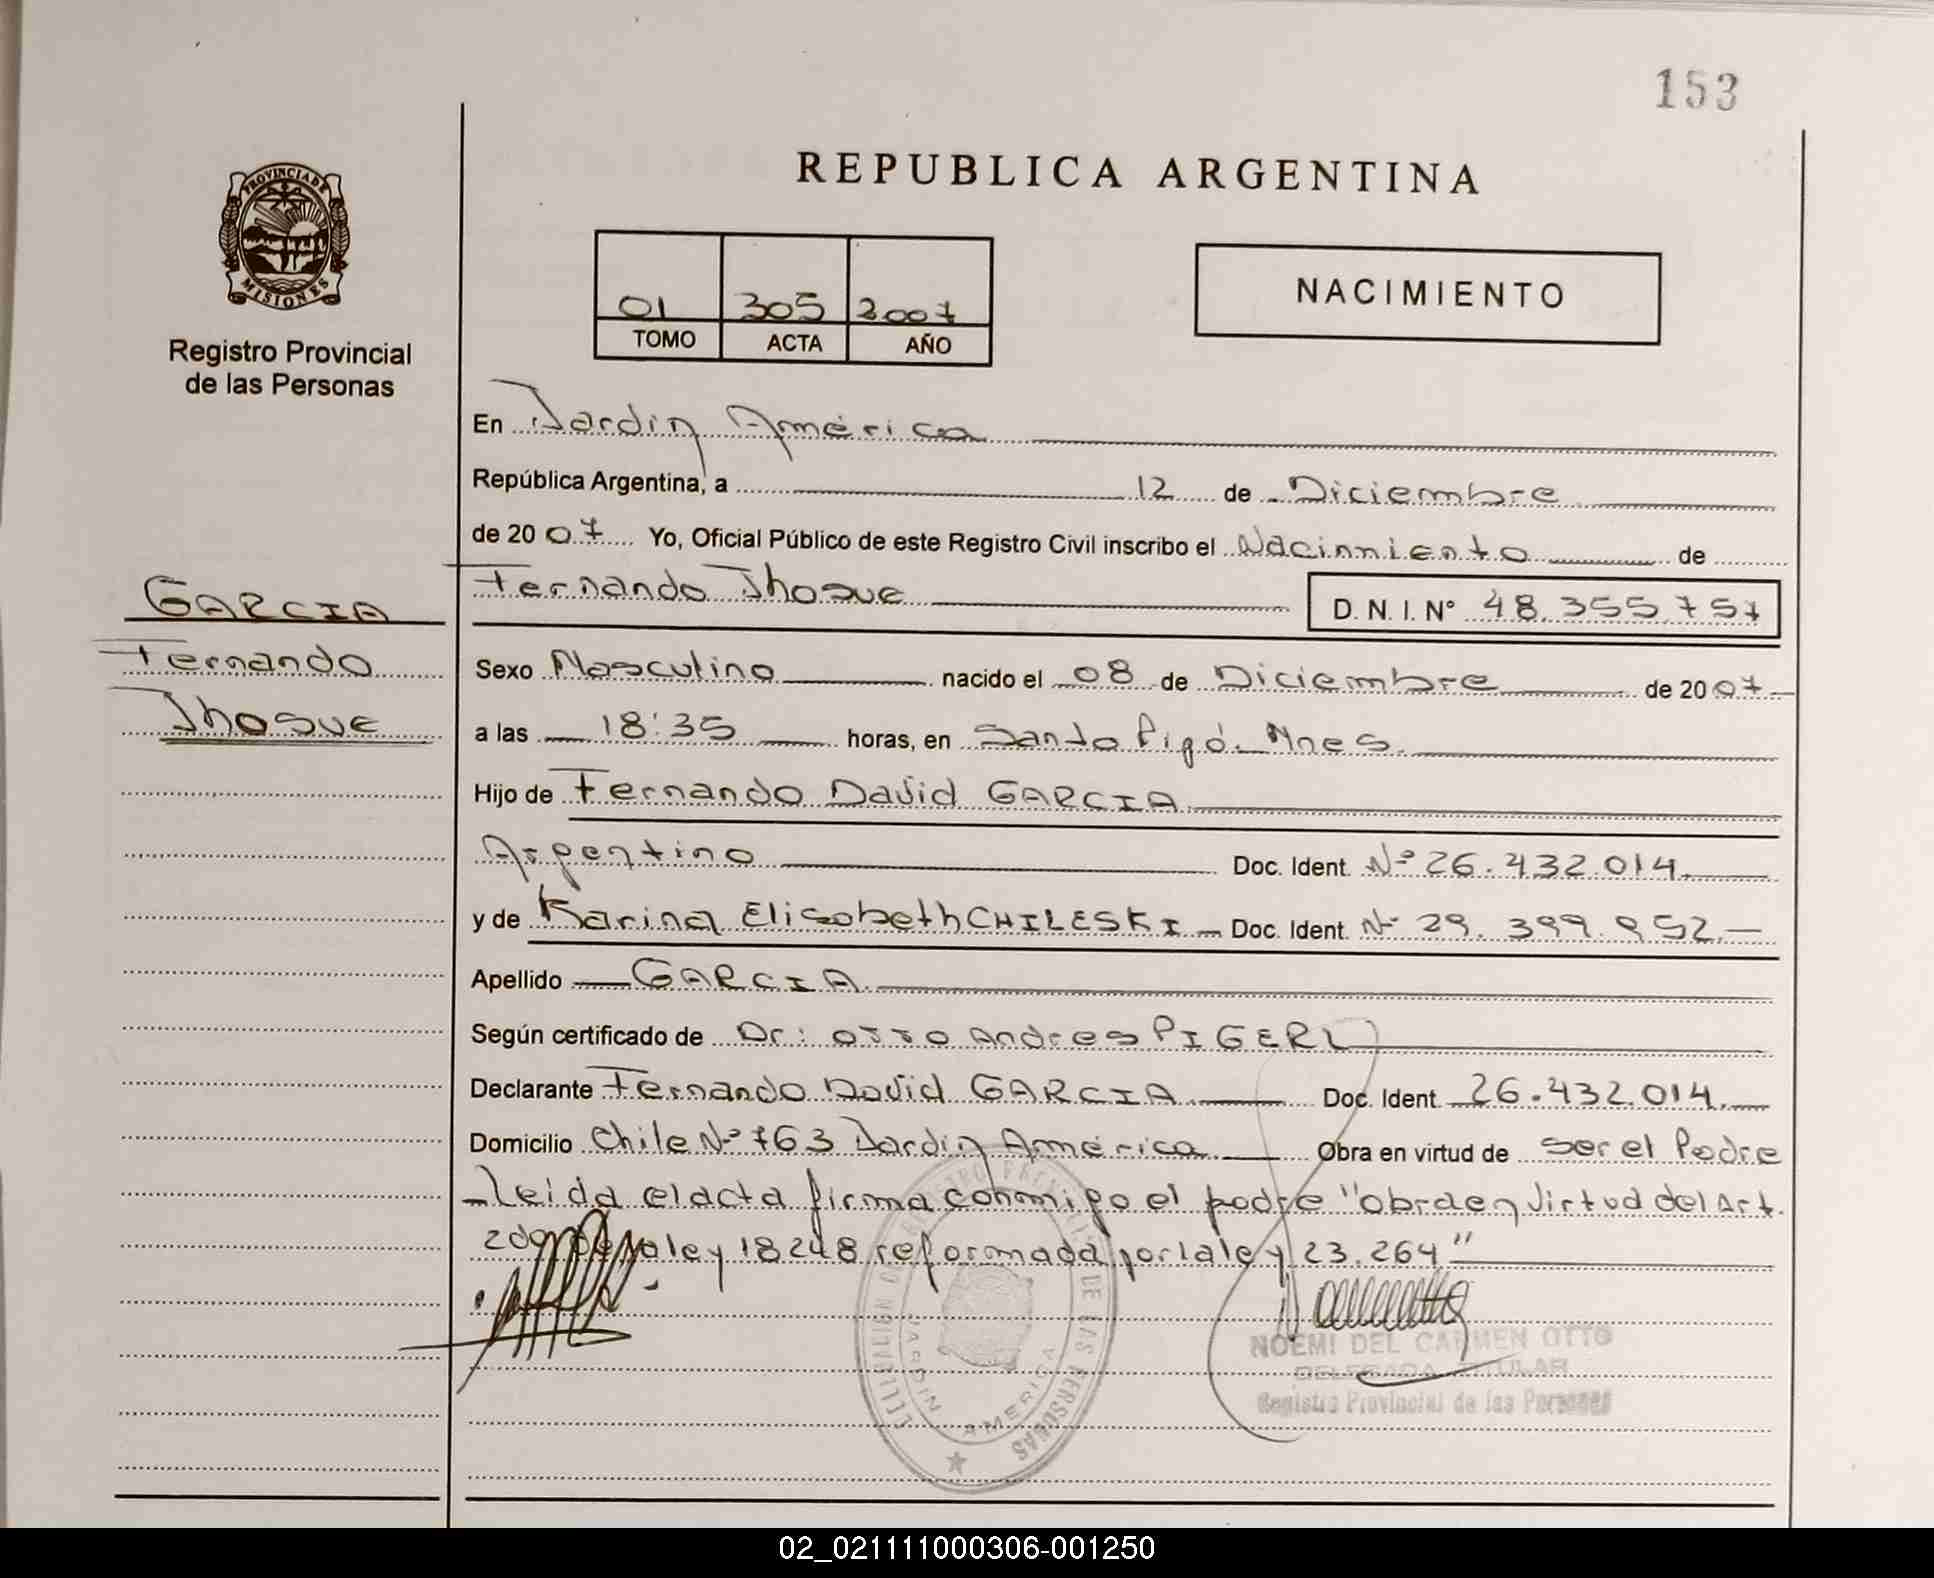 153
REPUBLICA ARGENTINA
PROVINCIA DE
MISIONES
Registro Provincial
de las Personas
01 305 2007
TOMO ACTA AÑO
NACIMIENTO
En Jardin América
República Argentina, a 12 de Diciembre
de 2007 Yo, Oficial Público de este Registro Civil inscribo el Nacinmiento de
Fernando Jhosue D. N. I. N° 48.355.757
GARCIA
Fernando
Jhosue
Sexo Masculino nacido el 08 de Diciembre de 2007
a las 18:35 horas, en Santo Pipó. Mnes.
Hijo de Fernando David GARCIA
Argentino Doc. Ident. Nº 26.432.014.
y de Karina Elisabeth CHILESKI Doc. Ident. Nº 29. 399. 952.
Apellido GARCIA
Según certificado de Dr: OTTO Andres PIGERL
Declarante Fernando David GARCIA Doc. Ident. 26.432.014.
Domicilio Chile Nº 763 Jardin América Obra en virtud de ser el Padre
Leida el acta firma conmigo el padre "Obra en virtud del Art.
2do ley 18248 reformada por la ley 23.264"
DE LAS PERSONAS
JARDIN AMERICA
NOEMI DEL CARMEN OTTO
DELEGADA TITULAR
Registro Provincial de las Personas
02_021111000306-001250